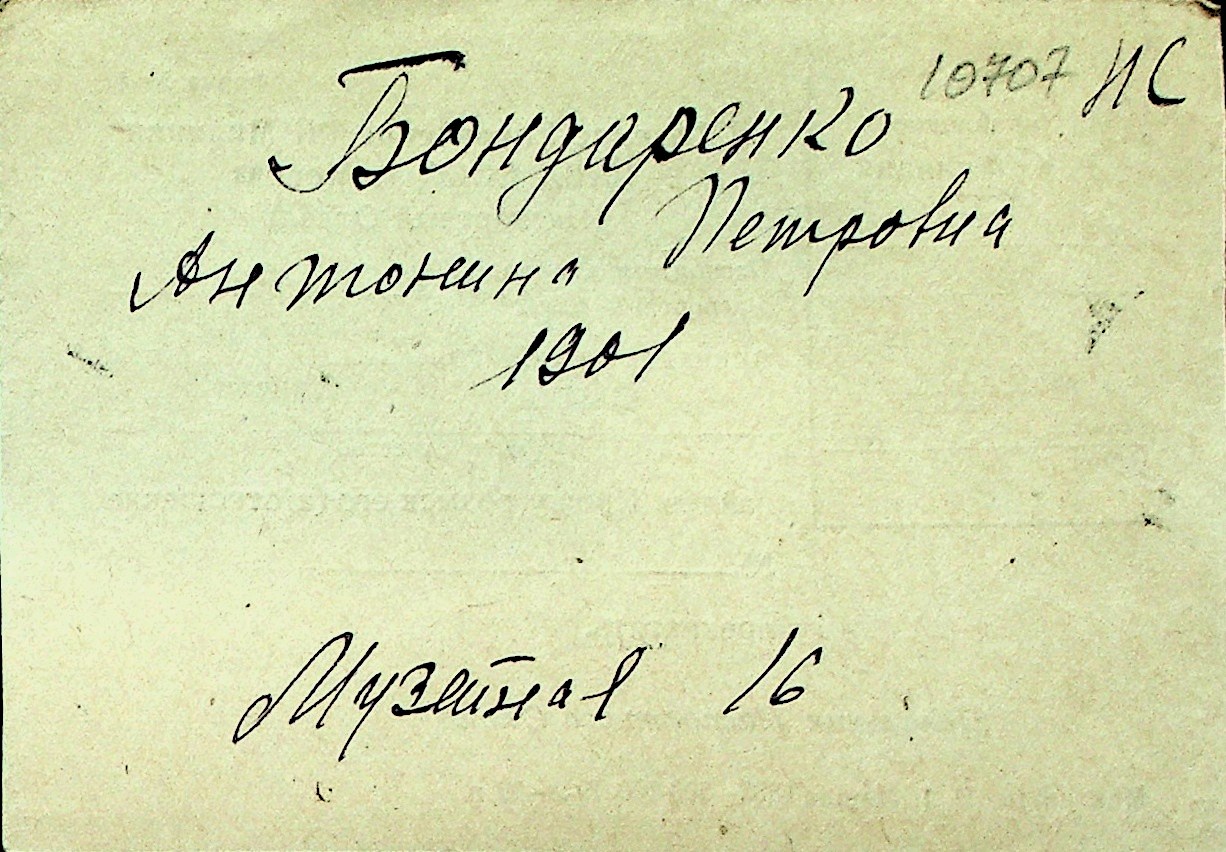 10707 НС
Бондаренко
Антонина Петровна
1901
Музейная 16